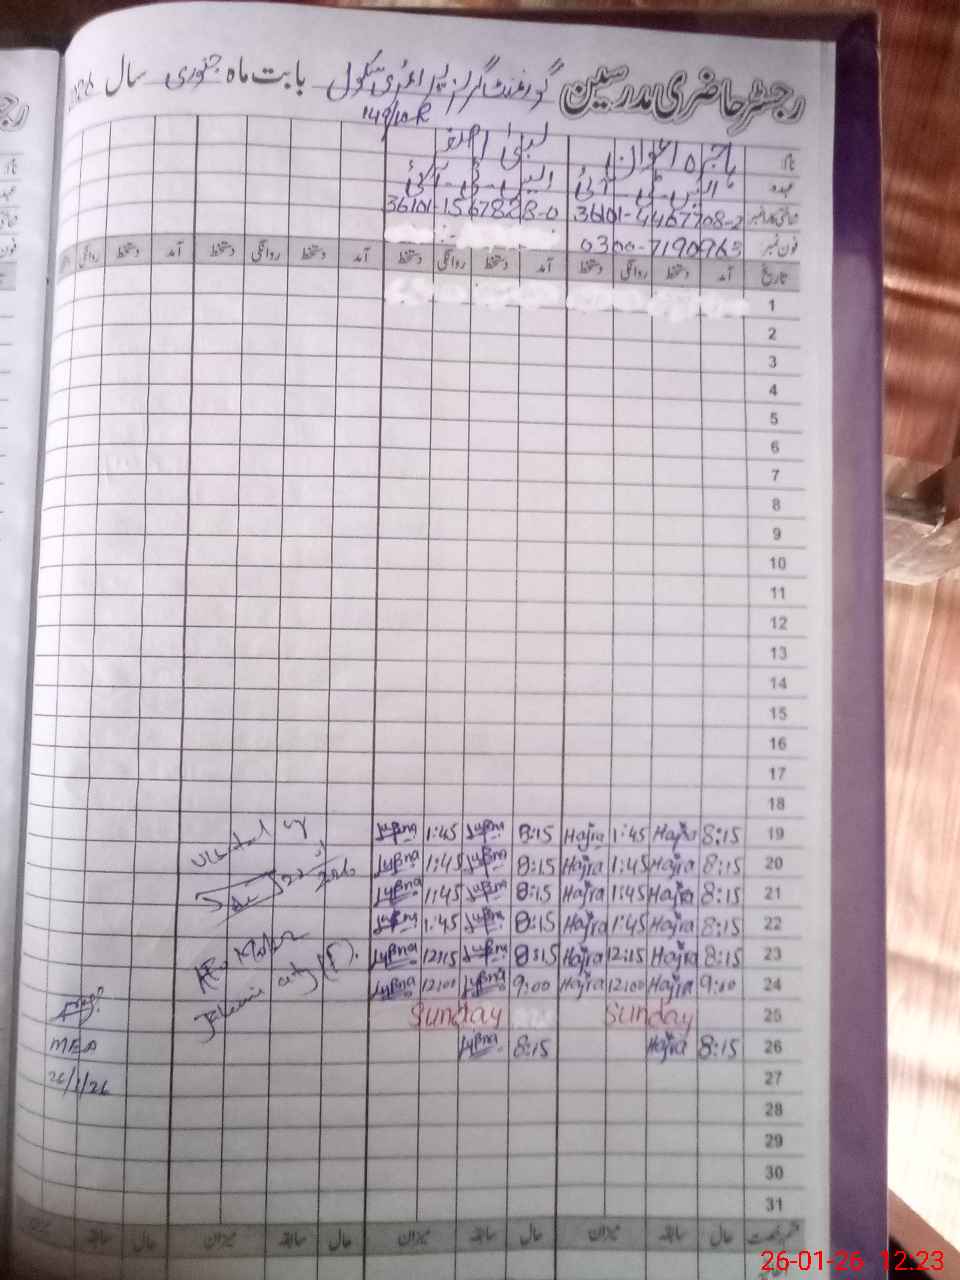 رجسٹر حاضری مدرسین گورنمنٹ گرلز پرائمری سکول بابت ماہ جنوری سال 2026
149/10-R
نام ہاجرہ اعوان لبنیٰ
عہدہ ایس۔ٹی۔آئی ایس۔ٹی۔آئی
36101-4467708-2 36101-1567828-0
فون نمبر 0300-7190963
تاریخ آمد دستخط روانگی دستخط آمد دستخط روانگی دستخط آمد دستخط روانگی دستخط آمد دستخط روانگی
1
2
3
4
5
6
7
8
9
10
11
12
13
14
15
16
17
18
19 8:15 Hajra 1:45 Hajra 8:15 Lubna 1:45 Lubna
20 8:15 Hajra 1:45 Hajra 8:15 Lubna 1:45 Lubna
21 8:15 Hajra 1:45 Hajra 8:15 Lubna 1:45 Lubna
22 8:15 Hajra 1:45 Hajra 8:15 Lubna 1:45 Lubna
23 8:15 Hajra 12:15 Hajra 8:15 Lubna 12:15 Lubna
24 9:00 Hajra 12:00 Hajra 9:00 Lubna 12:00 Lubna
25 Sunday Sunday
26 8:15 Hajra 8:15 Lubna
27
28
29
30
31
visited by
AEO
city (F).
MEA
26/1/26
حال سابقہ میزان حال سابقہ میزان حال سابقہ میزان حال سابقہ
26-01-26 12:23